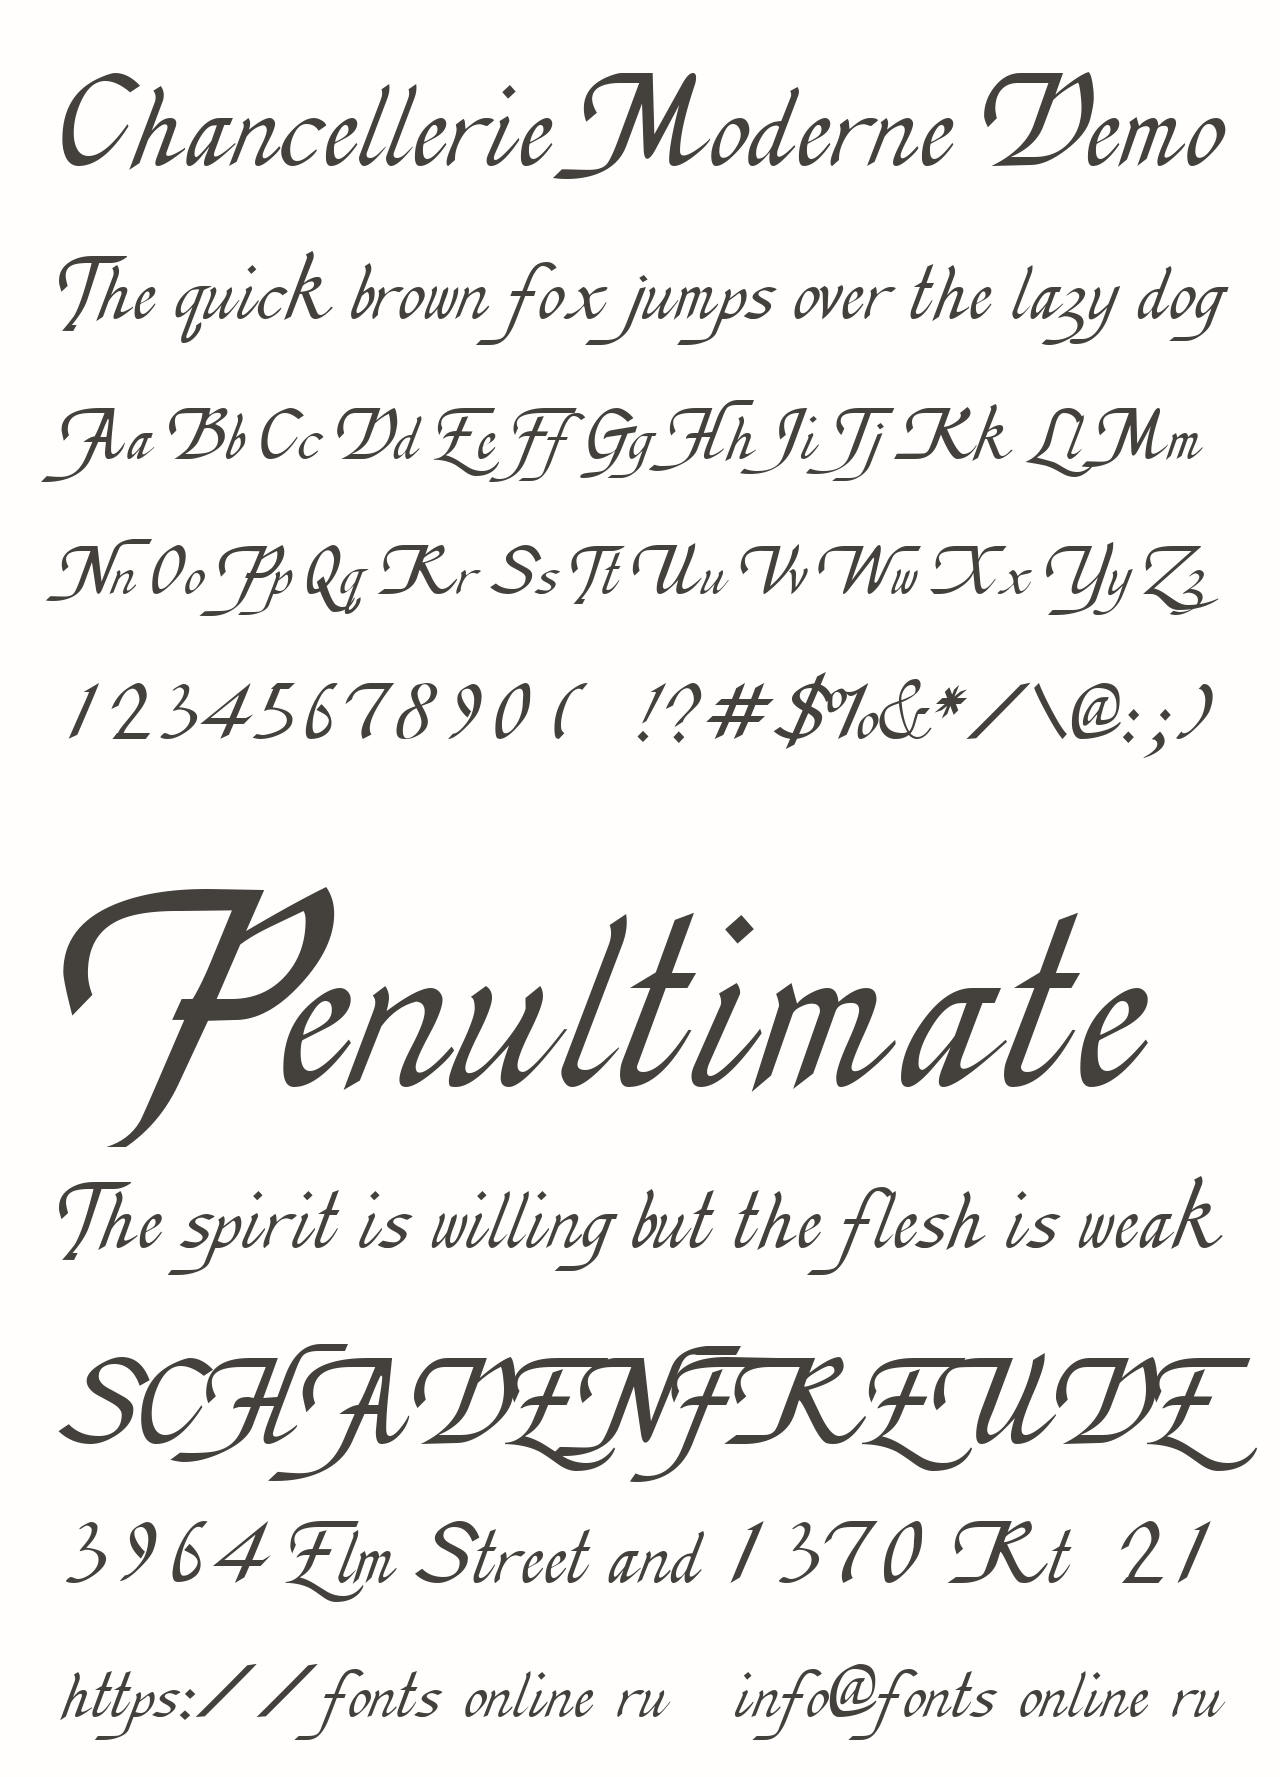 Chancellerie Moderne Demo
The quick brown fox jumps over the lazy dog
Aa Bb Cc Dd Ee Ff Gg Hh Ii Jj Kk Ll Mm
Nn Oo Pp Qq Rr Ss Tt Uu Vv Ww Xx Yy Zz
1234567890( !?#$%&*/\@:;)
Penultimate
The spirit is willing but the flesh is weak
SCHADENFREUDE
3964 Elm Street and 1370 Rt 21
https://fonts online ru info@fonts online ru